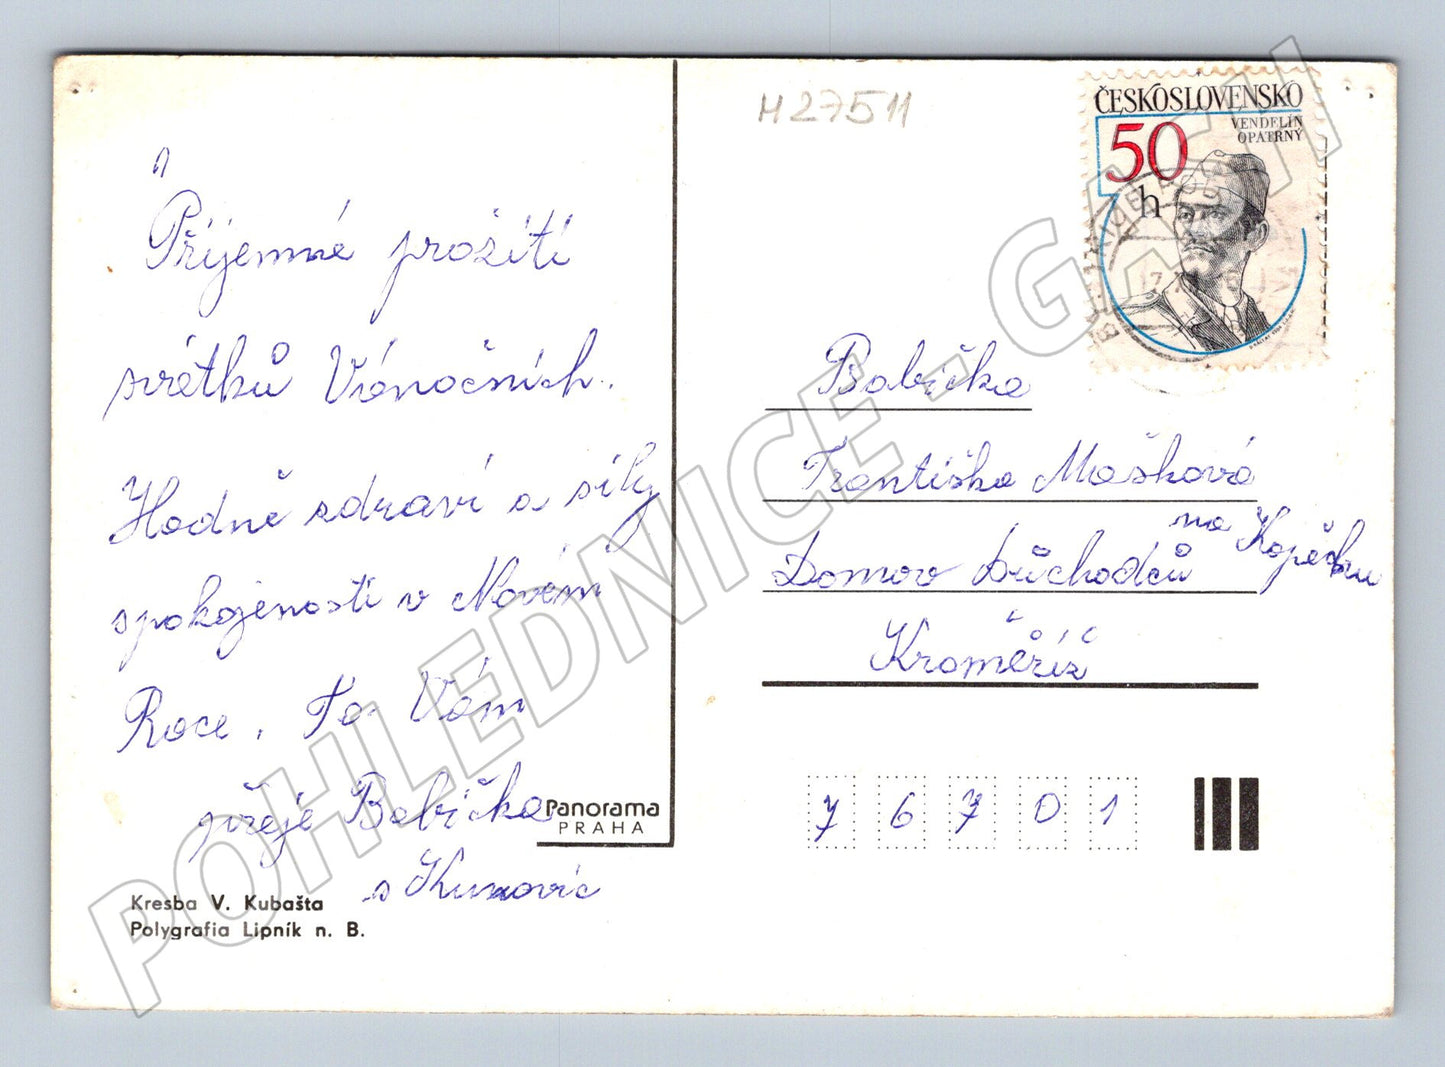 H27511
ČESKOSLOVENSKO
50
h
VENDELÍN
OPATRNÝ
Příjemné prožití
svátků Vánočních.
Hodně zdraví a síly
spokojenosti v Novém
Roce. To Vám
přeje Babička
s Kunovic
Panorama
PRAHA
Kresba V. Kubašta
Polygrafia Lipník n. B.
Babička
Františka Mašková
Domov Důchodců na Kopečku
Kroměříž
7 6 7 0 1
POHLEDNICE - GACH